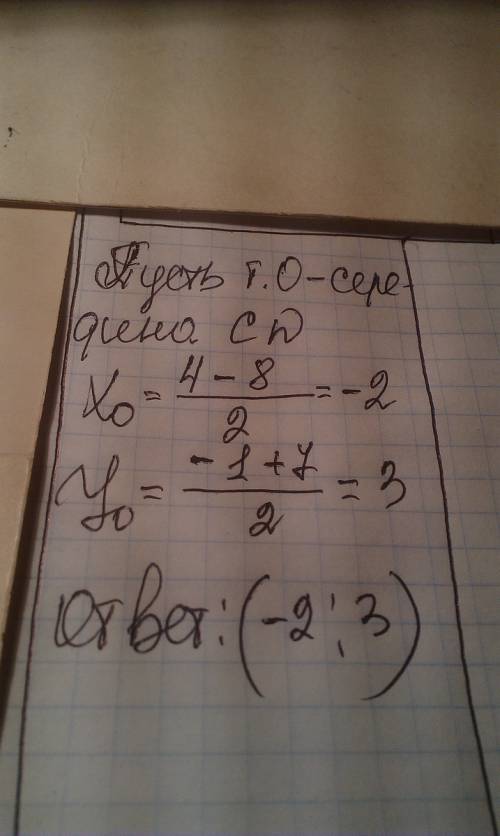 Пусть т. О - сере-
дина СД
X₀ = (4 - 8)/2 = -2
У₀ = (-1 + 7)/2 = 3
Ответ: (-2; 3)